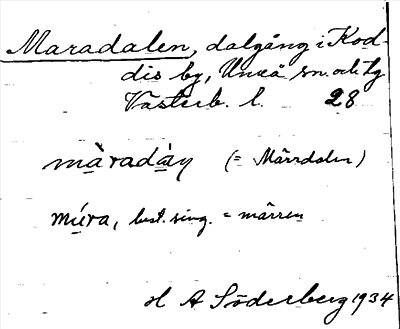 Maradalen, dalgång i Kod-
dis by, Umeå sn. och lg
Västerb. l. 28
màradáṇ (= Märrdalen)
mára, best. sing. = märren
H A Söderberg 1934